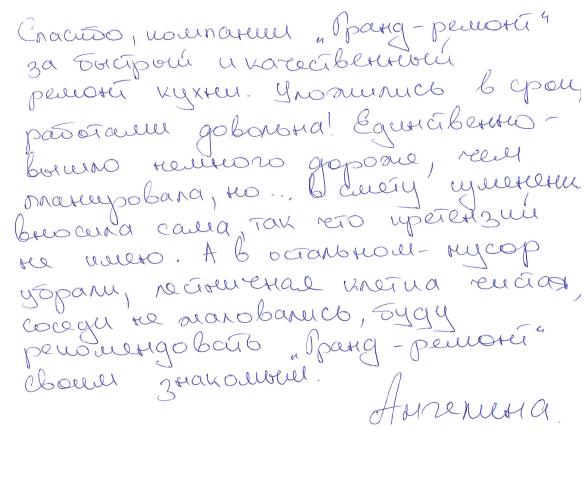 Спасибо, компании „Гранд-ремонт"
за быстрый и качественный
ремонт кухни. Уложились в срок,
работами довольна! Единственно-
вышло немного дороже, чем
планировала, но... в смету изменени
вносила сама, так что претензий
не имею. А в остальном- мусор
убрали, лестничная клетка чистая,
соседи не жаловались, буду
рекомендовать „Гранд-ремонт"
своим знакомым.
Ангелина.